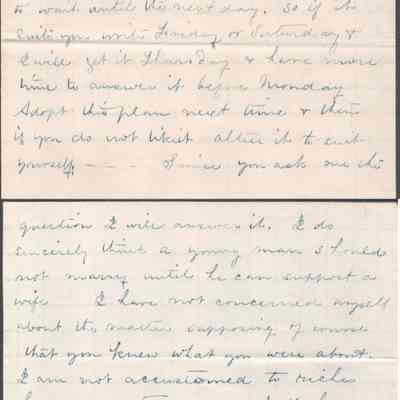 to wait until the next day. So if it
suits you write Friday or Saturday &
I will get it Thursday & have more
time to answer it before Monday
Adopt this plan next time & then
if you do not like it alter it to suit
yourself. - - - Since you ask me the
question I will answer it. I do
sincerely think a young man should
not marry until he can support a
wife I have not concerned myself
about the matter supposing of course
that you knew what you were about.
I am not accustomed to riches